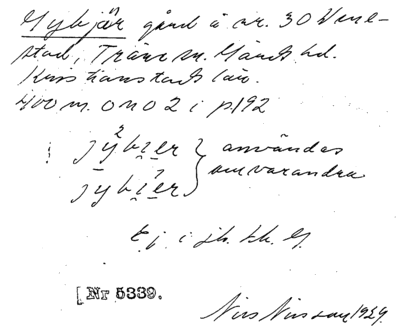 Gybjär gård å nr. 30 Vene-
stad, Träne m. Gärds hd.
Kristianstads län.
400 m. ONO 2 i p. 192
jybier } användas
jybier } om varandra
Ej i jb. sk. G.
[Nr 5339.
Nils Nilsson 1929.